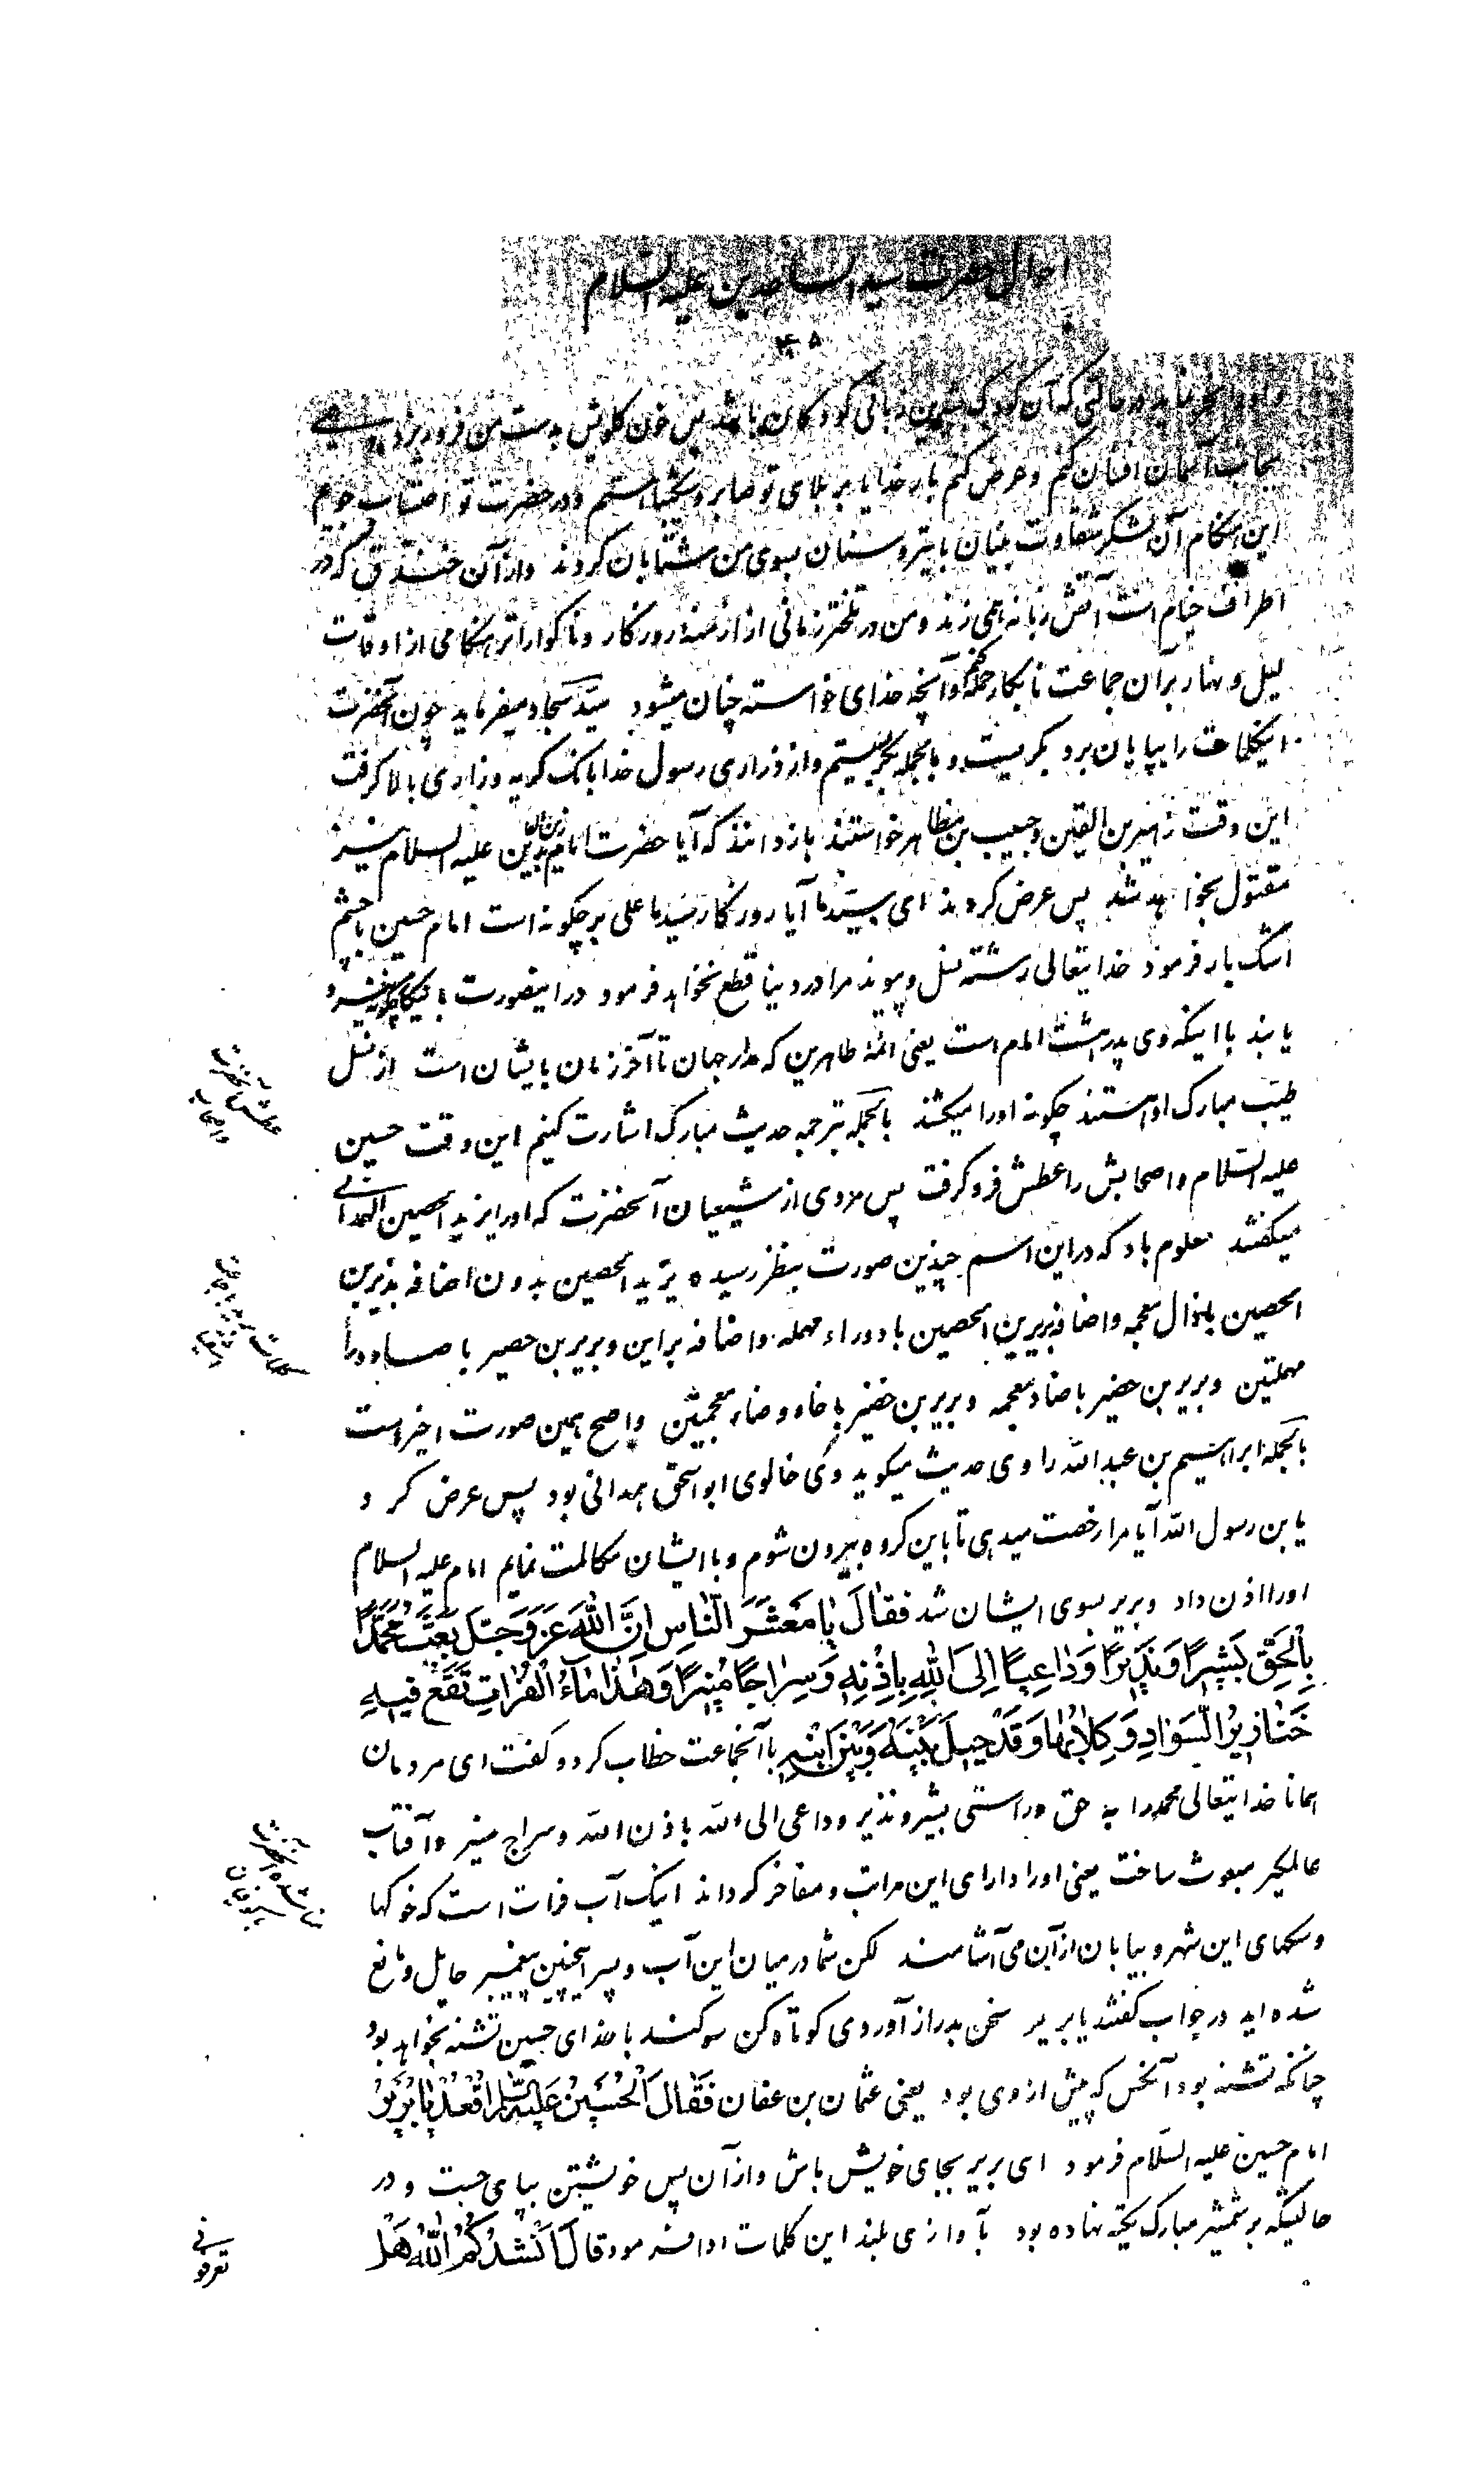 احوال حضرت سید الساجدین علیه السلام
در حالتی که آن کودک شیرین زبانی کودکان باشد پس خون گلویش بدست من فرو ریزد
بجانب آسمان افشان کنم و عرض کنم بار خدایا بر بلای تو صابر و شکیبا هستم و در حضرت تو احتساب جویم
این هنگام آن لشکر شقاوت بنیان با تیر و سنان بسوی من شتابان کردند و از آن خندق که در
اطراف خیام است آتش زبانه همی زند و من در تلخترزمانی از ازمنه روزگار و ناگوارتر هنگامی از اوقات
لیل و نهار بر آن جماعت نابکار حمله کنم و آنچه خدای خواسته چنان میشود سید سجاد میفرماید چون آنحضرت
اینکلمات را بپایان برد بگریست و بالجمله بگریستیم و از ذراری رسول خدا بانک گریه و زاری بالا گرفت
این وقت زهیر بن القین و حبیب بن مظاهر خواستند بازدانند که آیا حضرت امام زین العابدین علیه السلام نیز
مقتول بخواهد شد پس عرض کردند ای سیدما آیا روزگار سیدما علی بر چگونه است امام حسین با چشم
اشک بار فرمود خدایتعالی رشته نسل و پیوند مرا در دنیا قطع نخواهد فرمود در اینصورت با
یابند با اینکه وی پدر هشت امام است یعنی ائمه طاهرین که مدار جهان تا آخر زمان بایشان است از نسل
طیب مبارک او هستند چگونه او را میکشند بالجمله بترجمه حدیث مبارک اشارت کنیم این وقت حسین
علیه السلام و اصحابش را عطش فرو گرفت پس مردی از شیعیان آنحضرت که او را یزید الحصین الهمدانی
میگفتند معلوم باد که در این اسم چندین صورت بنظر رسیده یزید الحصین بدون اضافه بذیرین
الحصین با ذال معجمه و اضافه بریربن الحصین با دو راء مهمله و اضافه بر این و بریر بن حصیر با صاد و را
مهملتین و بریر بن حضیر با ضاد معجمه و بریر بن خضیر با خاء و ضاد معجمتین و اصح همین صورت اخیر است
بالجمله ابراهیم بن عبدالله راوی حدیث میگوید وی خالوی ابو اسحق همدانی بود پس عرض کرد
یابن رسول الله آیا مرا رخصت میدهی تا باین گروه بیرون شوم و با ایشان مکالمت نمایم امام علیه السلام
او را اذن داد و بریر بسوی ایشان شد فَقالَ یا مَعْشَرَ النّاسِ اِنَّ اللّٰهَ عَزَّ وَجَلَّ بَعَثَ مُحَمَّدًا
بِالْحَقِّ بَشیرًا وَنَذیرًا وَداعِیًا اِلَی اللّٰهِ بِاِذْنِهِ وَسِراجًا مُنیرًا وَهٰذا ماءُ الْفُراتِ تَقَعُ فیهِ
خَنازیرُ السَّوادِ وَکِلابُها وَقَدْ حیلَ بَیْنَهُ وَبَیْنَ ابْنِهِ با آنجماعت خطاب کرد و گفت ای مردمان
همانا خدایتعالی محمد را به حق و راستی بشیر و نذیر و داعی الی الله باذن الله و سراج منیر و آفتاب
عالمگیر مبعوث ساخت یعنی او را دارای این مراتب و مفاخر گرداند اینک آب فرات است که خوکها
و سکهای این شهر و بیابان از آن می آشامند لکن شما در میان این آب و پسر اینچنین پیغمبر حایل و مانع
شده اید در جواب گفتند یا بریر سخن بدراز آوردی کوتاه کن سوگند با خدای حسین تشنه بخواهد بود
چنانکه تشنه بود آنکس که پیش از وی بود یعنی عثمان بن عفان فَقالَ الْحُسَیْنُ عَلَیْهِ السَّلامُ اقْعُدْ یا بُرَیْرُ
امام حسین علیه السلام فرمود ای بریر بجای خویش باش و از آن پس خویشتن بپای جست و در
حالیکه بر شمشیر مبارک تکیه نهاده بود با آوازی بلند این کلمات ادا فرمود قالَ اَنْشُدُکُمُ اللّٰهَ هَلْ
تعرفونی